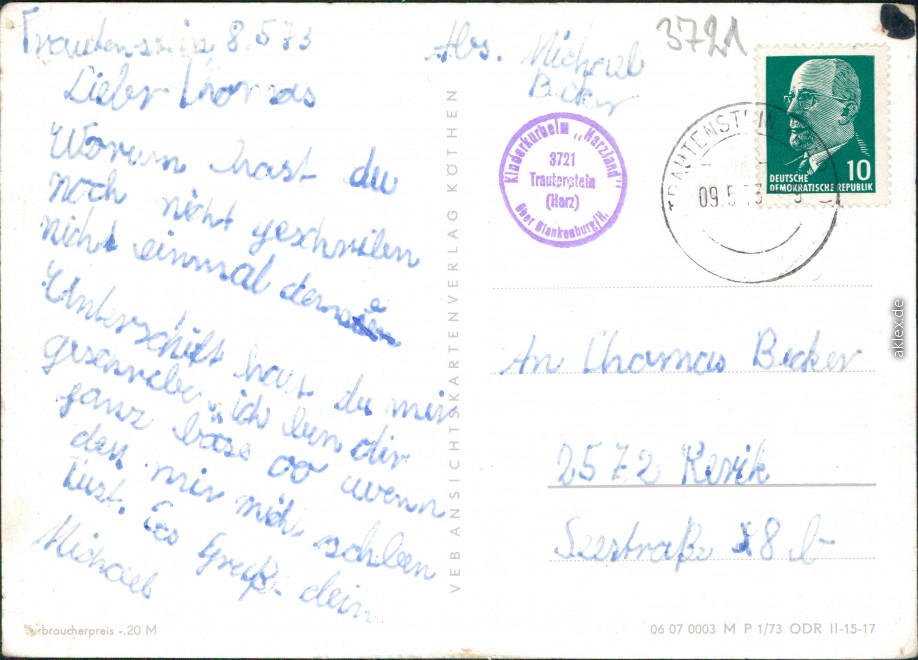 Trautenstein 8.5 73
Lieber Thomas
Worum hast du
noch nicht geschrieben
nicht einmal deine
Unterschift hast du mir
geschrieben ich bin dir
ganz böse oo wenn
du mir nich schreiben
tust. Es Grüß dein
Michael
Verbraucherpreis -.20 M
VEB ANSICHTSKARTENVERLAG KÖTHEN
Abs. Michael
Becker
3721
Kinderkurheim „Harzland"
3721
Trautenstein
(Harz)
über Blankenburg/H.
TRAUTENSTEIN
09.5.73
10
DEUTSCHE
DEMOKRATISCHE REPUBLIK
An Thomas Becker
2572 Rerik
Seestraße 8 b
06 07 0003 M P 1/73 ODR II-15-17
aklex.de